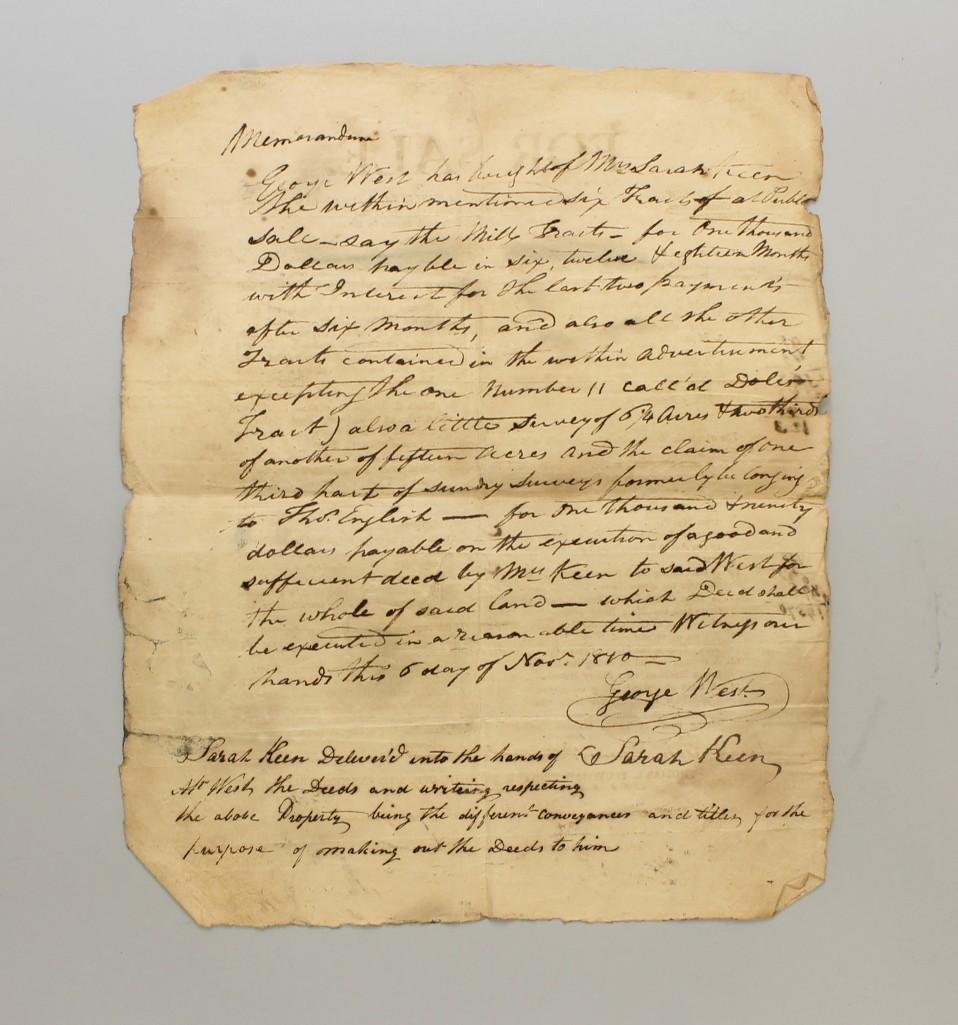 Memorandum
George West has bought of Mrs Sarah Keen
the within mentioned six Tracts of at Public
Sale – say the Mill Tracts – for One thousand
Dollars payble in six, twelve & eghteen Months
with Interest for the last two payments
after six months, and also all the other
Tracts contained in the within advertisement
excepting the one Number 11 call'd
Tract) also a little survey of 6 1/4 Acres & two thirds
of another of fifteen acres and the claim of one
third part of sundry surveys formerly belonging
to Thos. English — for one thousand & ninety
dollars payable on the execution of a good and
sufficient deed by Mrs Keen to said West for
the whole of said land — which Deed shall
be executed in a reasonable time Witness our
hands this 6 day of Novr. 1810 —
George West
Sarah Keen
Sarah Keen Deliver'd into the hands of
Mr West the Deeds and writing respecting
the above Property being the different conveyances and titles for the
purpose of making out the Deeds to him
FOR SALE